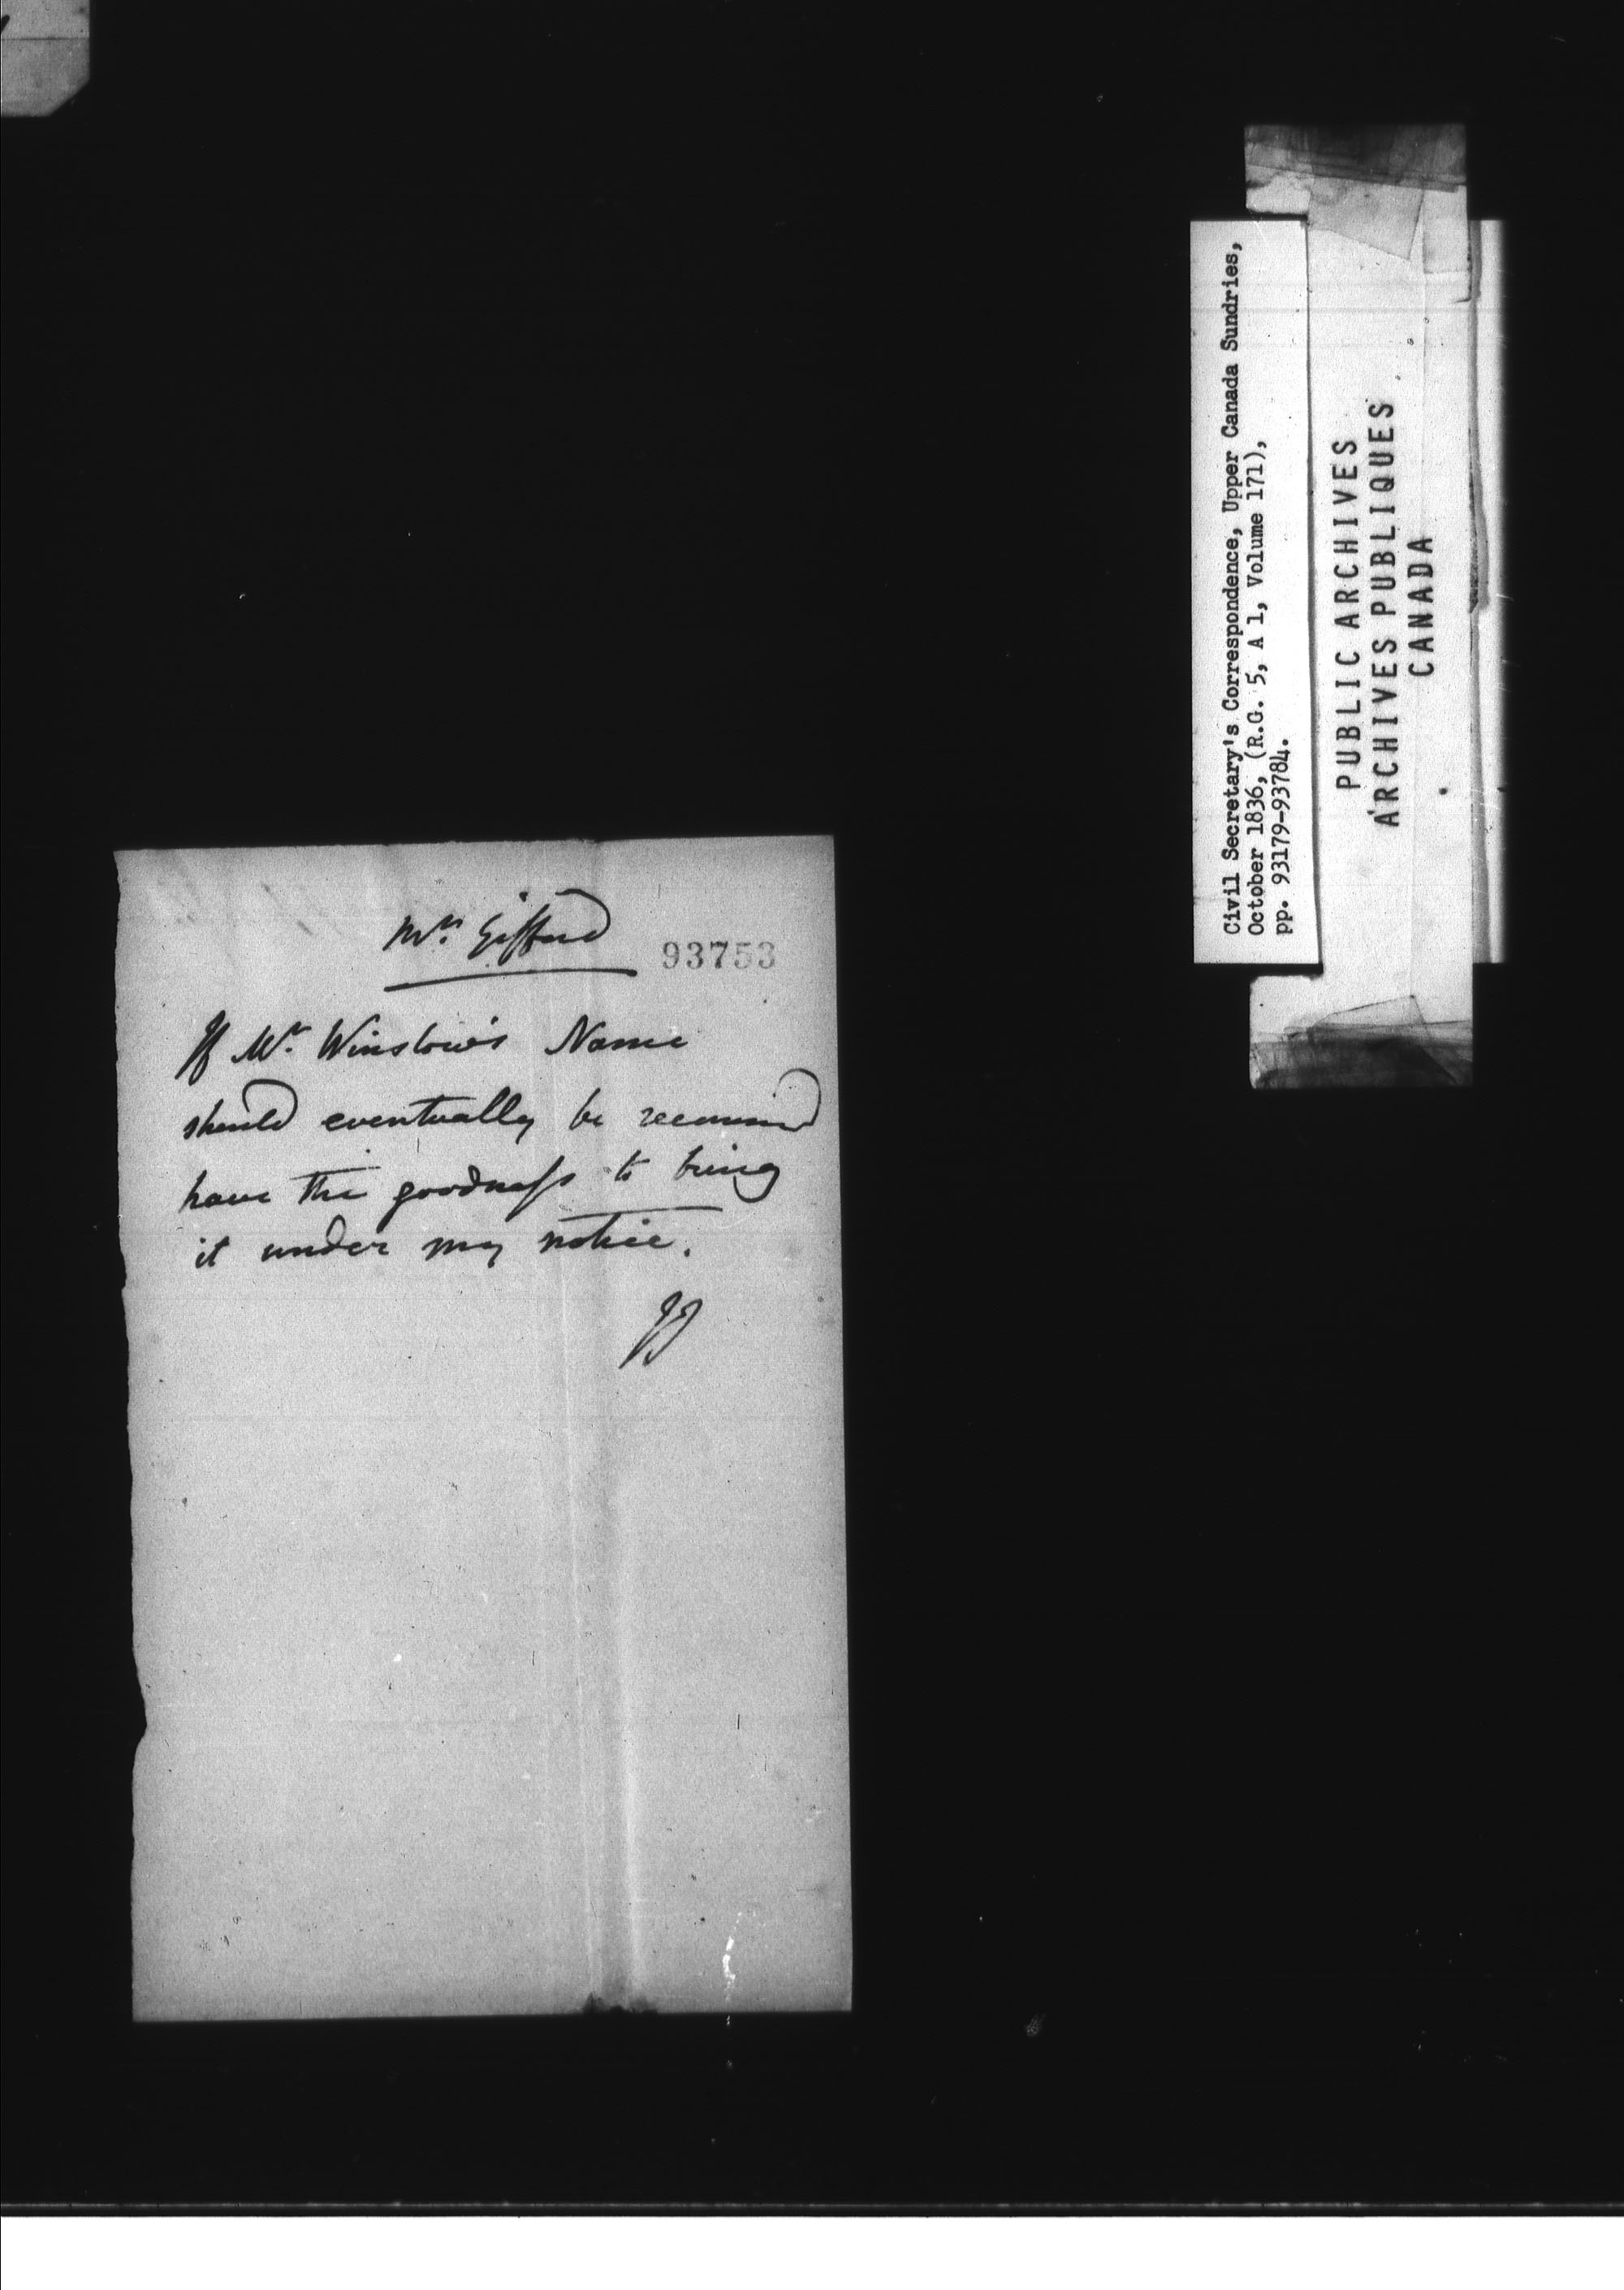 Mr. Gifford
93753
If Mr. Winslow's Name
should eventually be
have the goodness to bring
it under my notice.
JJ
Civil Secretary's Correspondence, Upper Canada Sundries,
October 1836, (R.G. 5, A 1, Volume 171),
pp. 93179-93784.
PUBLIC ARCHIVES
ARCHIVES PUBLIQUES
CANADA